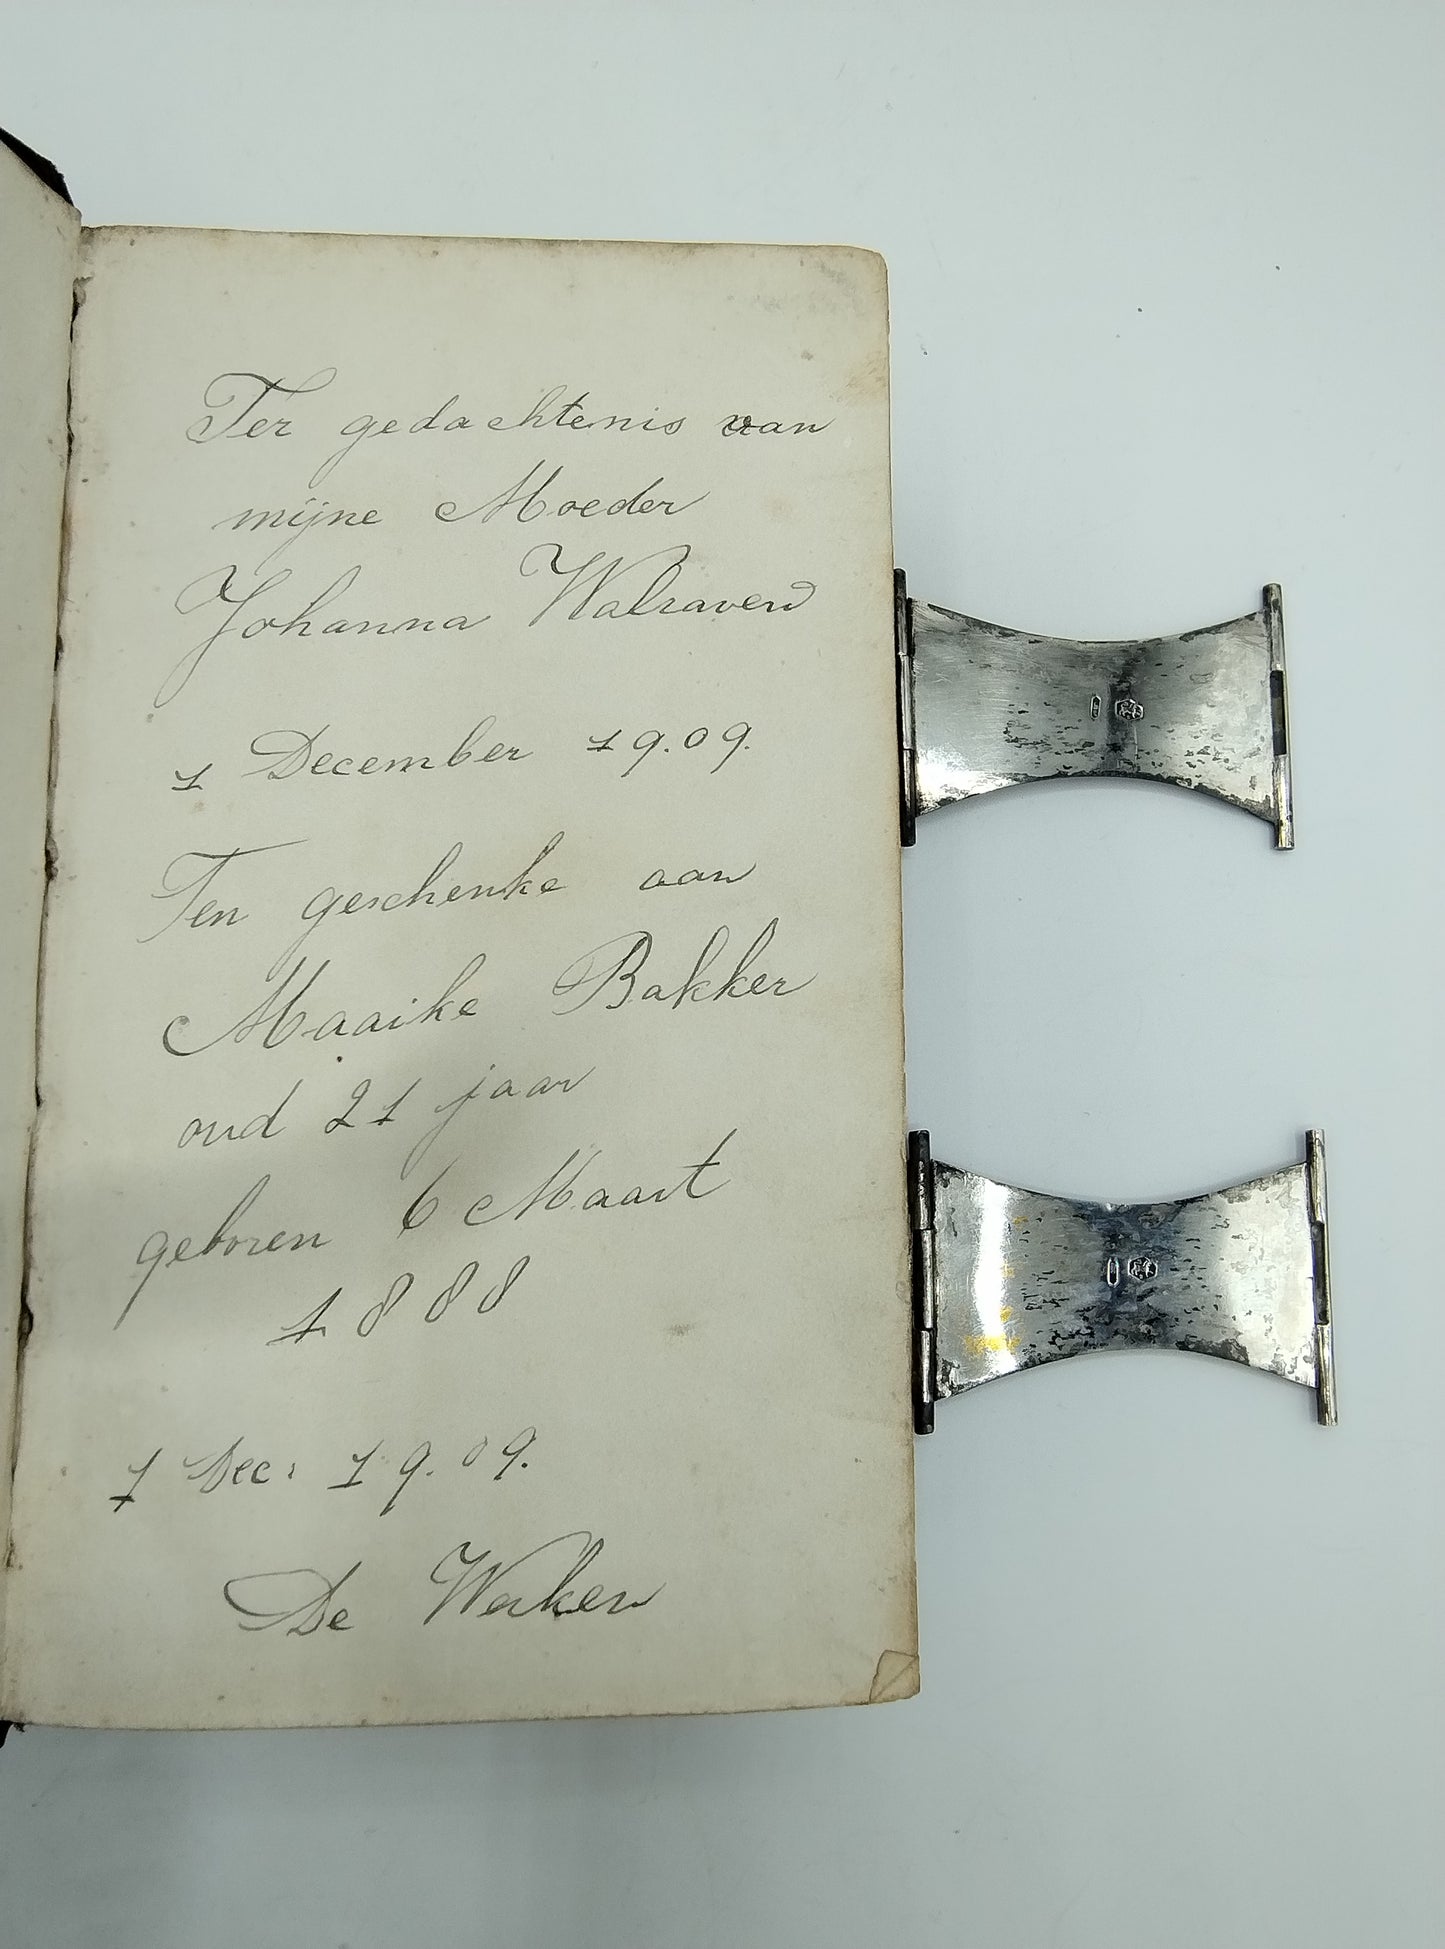 Ter gedachtenis van
mijne Moeder
Johanna Walraven
1 December 19.09.
Ten geschenke aan
Maaike Bakker
oud 21 jaar
geboren 6 Maart
1888
1 Dec: 19.09.
De Werken